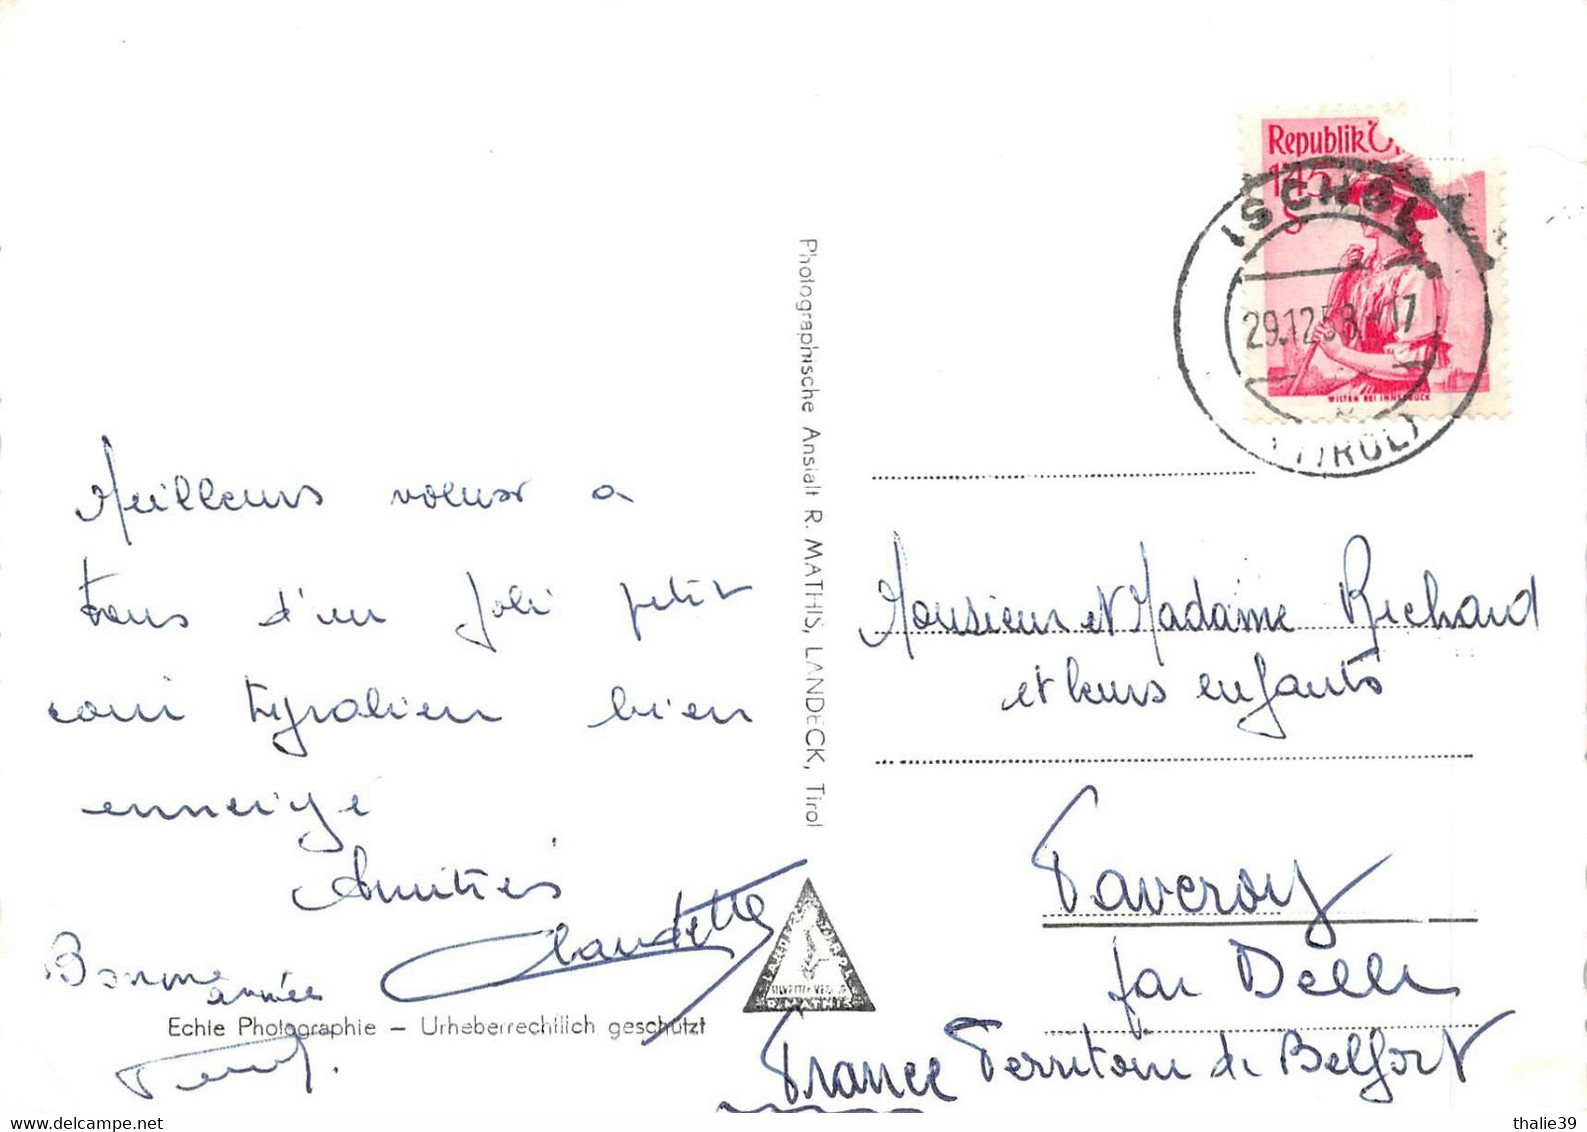 Meilleurs voeux a
tous d'un joli petit
coin tyrolien bien
enneigé
Amitiés
Claudette
Bonne
année
Echte Photographie – Urheberrechtlich geschützt
Photographische Anstalt R. MATHIS, LANDECK, Tirol
R. MATHIS
Republik Ö
1.45
S
WILTEN BEI INNSBRUCK
ISCHGL
29.12.58.-17
(TIROL)
Monsieur et Madame Richard
et leurs enfants
Faverois
par Delle
France Territoire de Belfort
thalie39